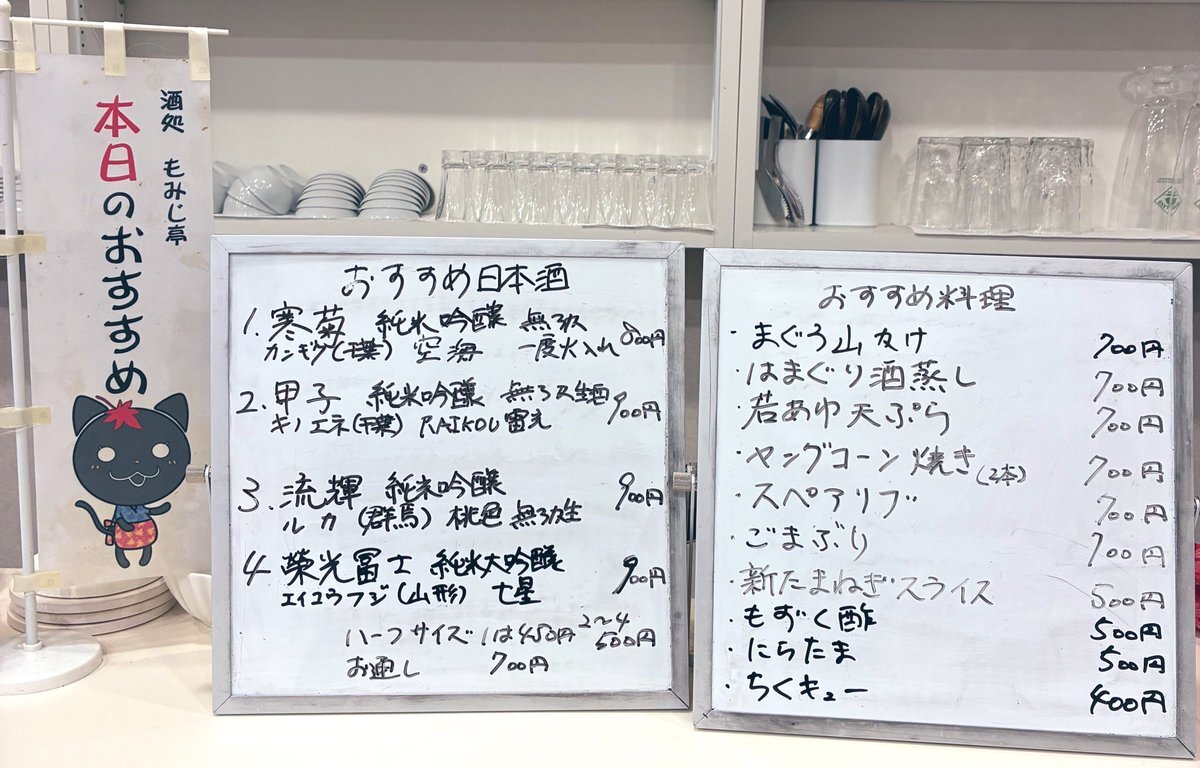 酒処 もみじ亭
本日のおすすめ
おすすめ日本酒
1. 寒菊 純米吟醸 無ろ次 800円
カンギク(千葉) 空海 一度火入れ
2. 甲子 純米吟醸 無ろ次生酒 900円
キノエネ(千葉) RAIKOU 雷光
3. 流輝 純米吟醸 900円
ルカ (群馬) 桃色 無ろ次生
4 榮光冨士 純米大吟醸 900円
エイコウフジ(山形) 七星
ハーフサイズ 1は450円 2〜4 500円
お通し 700円
おすすめ料理
・まぐろ山かけ 700円
・はまぐり酒蒸し 700円
・若あゆ天ぷら 700円
・ヤングコーン焼き(2本) 700円
・スペアリブ 700円
・ごまぶり 700円
・新たまねぎスライス 500円
・もずく酢 500円
・にらたま 500円
・ちくキュー 400円